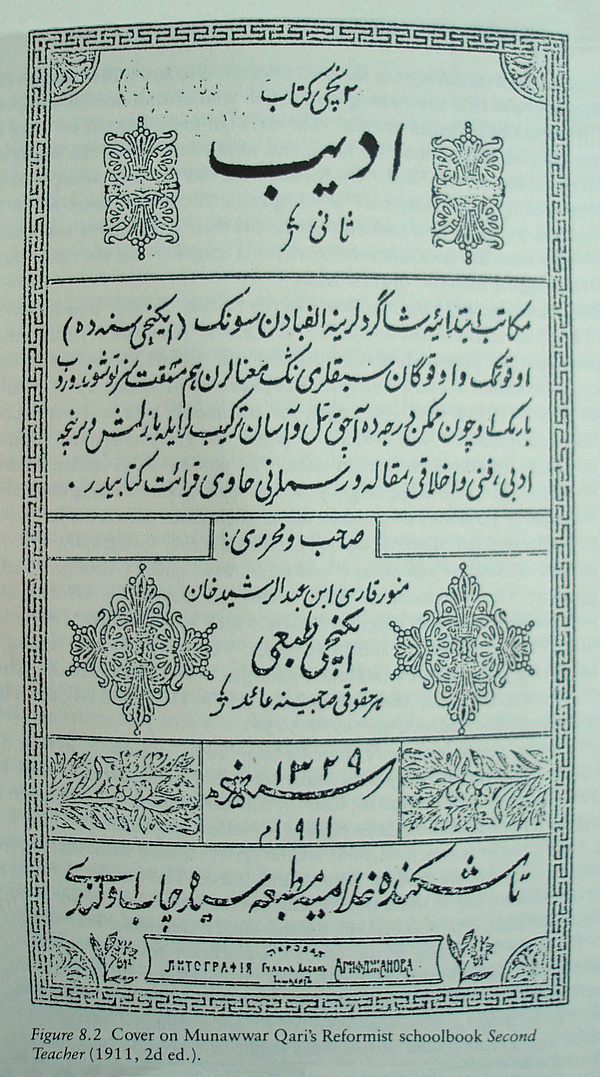 ۲نچی کتاب
ادیب
ثانی
مکاتب ابتدائیه شاگردلرینه الفبادن سونک (ایکنچی سنه ده)
اوقوتمک و اوقوگان سبقلری نک معنالرن هم مشقت سز توشوندورب
بارمک اوچون ممکن درجه ده آچق تل و آسان ترکیب لر ایله یازلمش و برنچه
ادبی، فنی و اخلاقی مقاله و رسملرنی حاوی قرائت کتابیدر.
صاحب و محرری:
منور قاری ابن عبدالرشید خان
ایکنچی طبعی
هر حقوقی صاحبینه عائد
۱۳۲۹
سنه
۱۹۱۱م
تاشکندده غلامیه مطبعه سیده چاپ اولندی
ЛИТОГРАФІЯ Гуламъ Хасанъ АРИФДЖАНОВА
Figure 8.2 Cover on Munawwar Qari's Reformist schoolbook Second
Teacher (1911, 2d ed.).